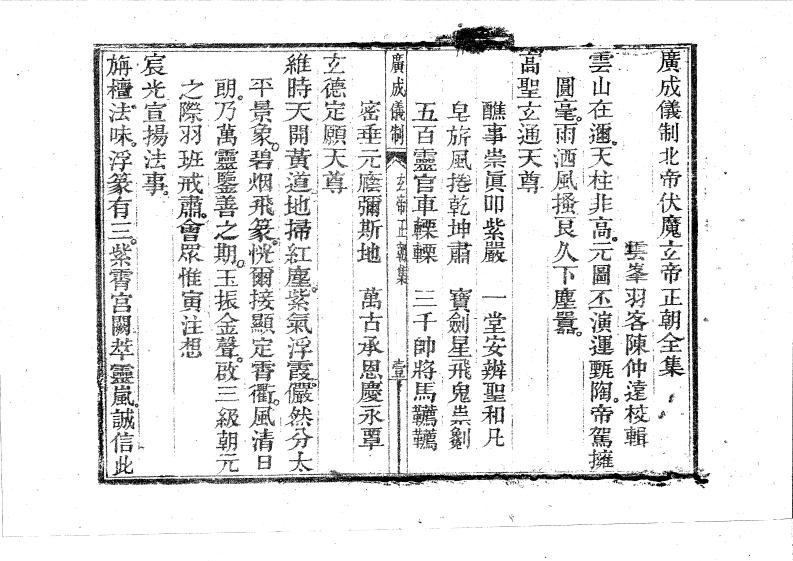 廣成儀制北帝伏魔玄帝正朝全集
雲峯羽客陳仲遠校輯
雲山在邇。天柱非高。元圖丕演運甄陶。帝駕擁
圓毫。雨洒風搔良久下塵囂。
高聖玄通天尊
醮事崇眞叩紫嚴　一堂安辦聖和凡
皂旂風捲乾坤肅　寶劍星飛鬼祟劖
五百靈官車轣轣　三千帥將馬驣驣
密垂元廕彌斯地　萬古承恩慶永覃
玄德定願天尊
維時天開黃道地掃紅塵。紫氣浮霞。儼然分太
平景象。碧烟飛篆。恍爾接顯定霄衢。風清日
朗。乃萬靈鑒善之期。玉振金聲。啟三級朝元
之際。羽班戒肅。會眾惟寅注想
宸光宣揚法事。
旃檀法味。浮篆有三。紫霄宮闕萃靈嵐。誠信此
廣成儀制　玄帝正朝集　壹